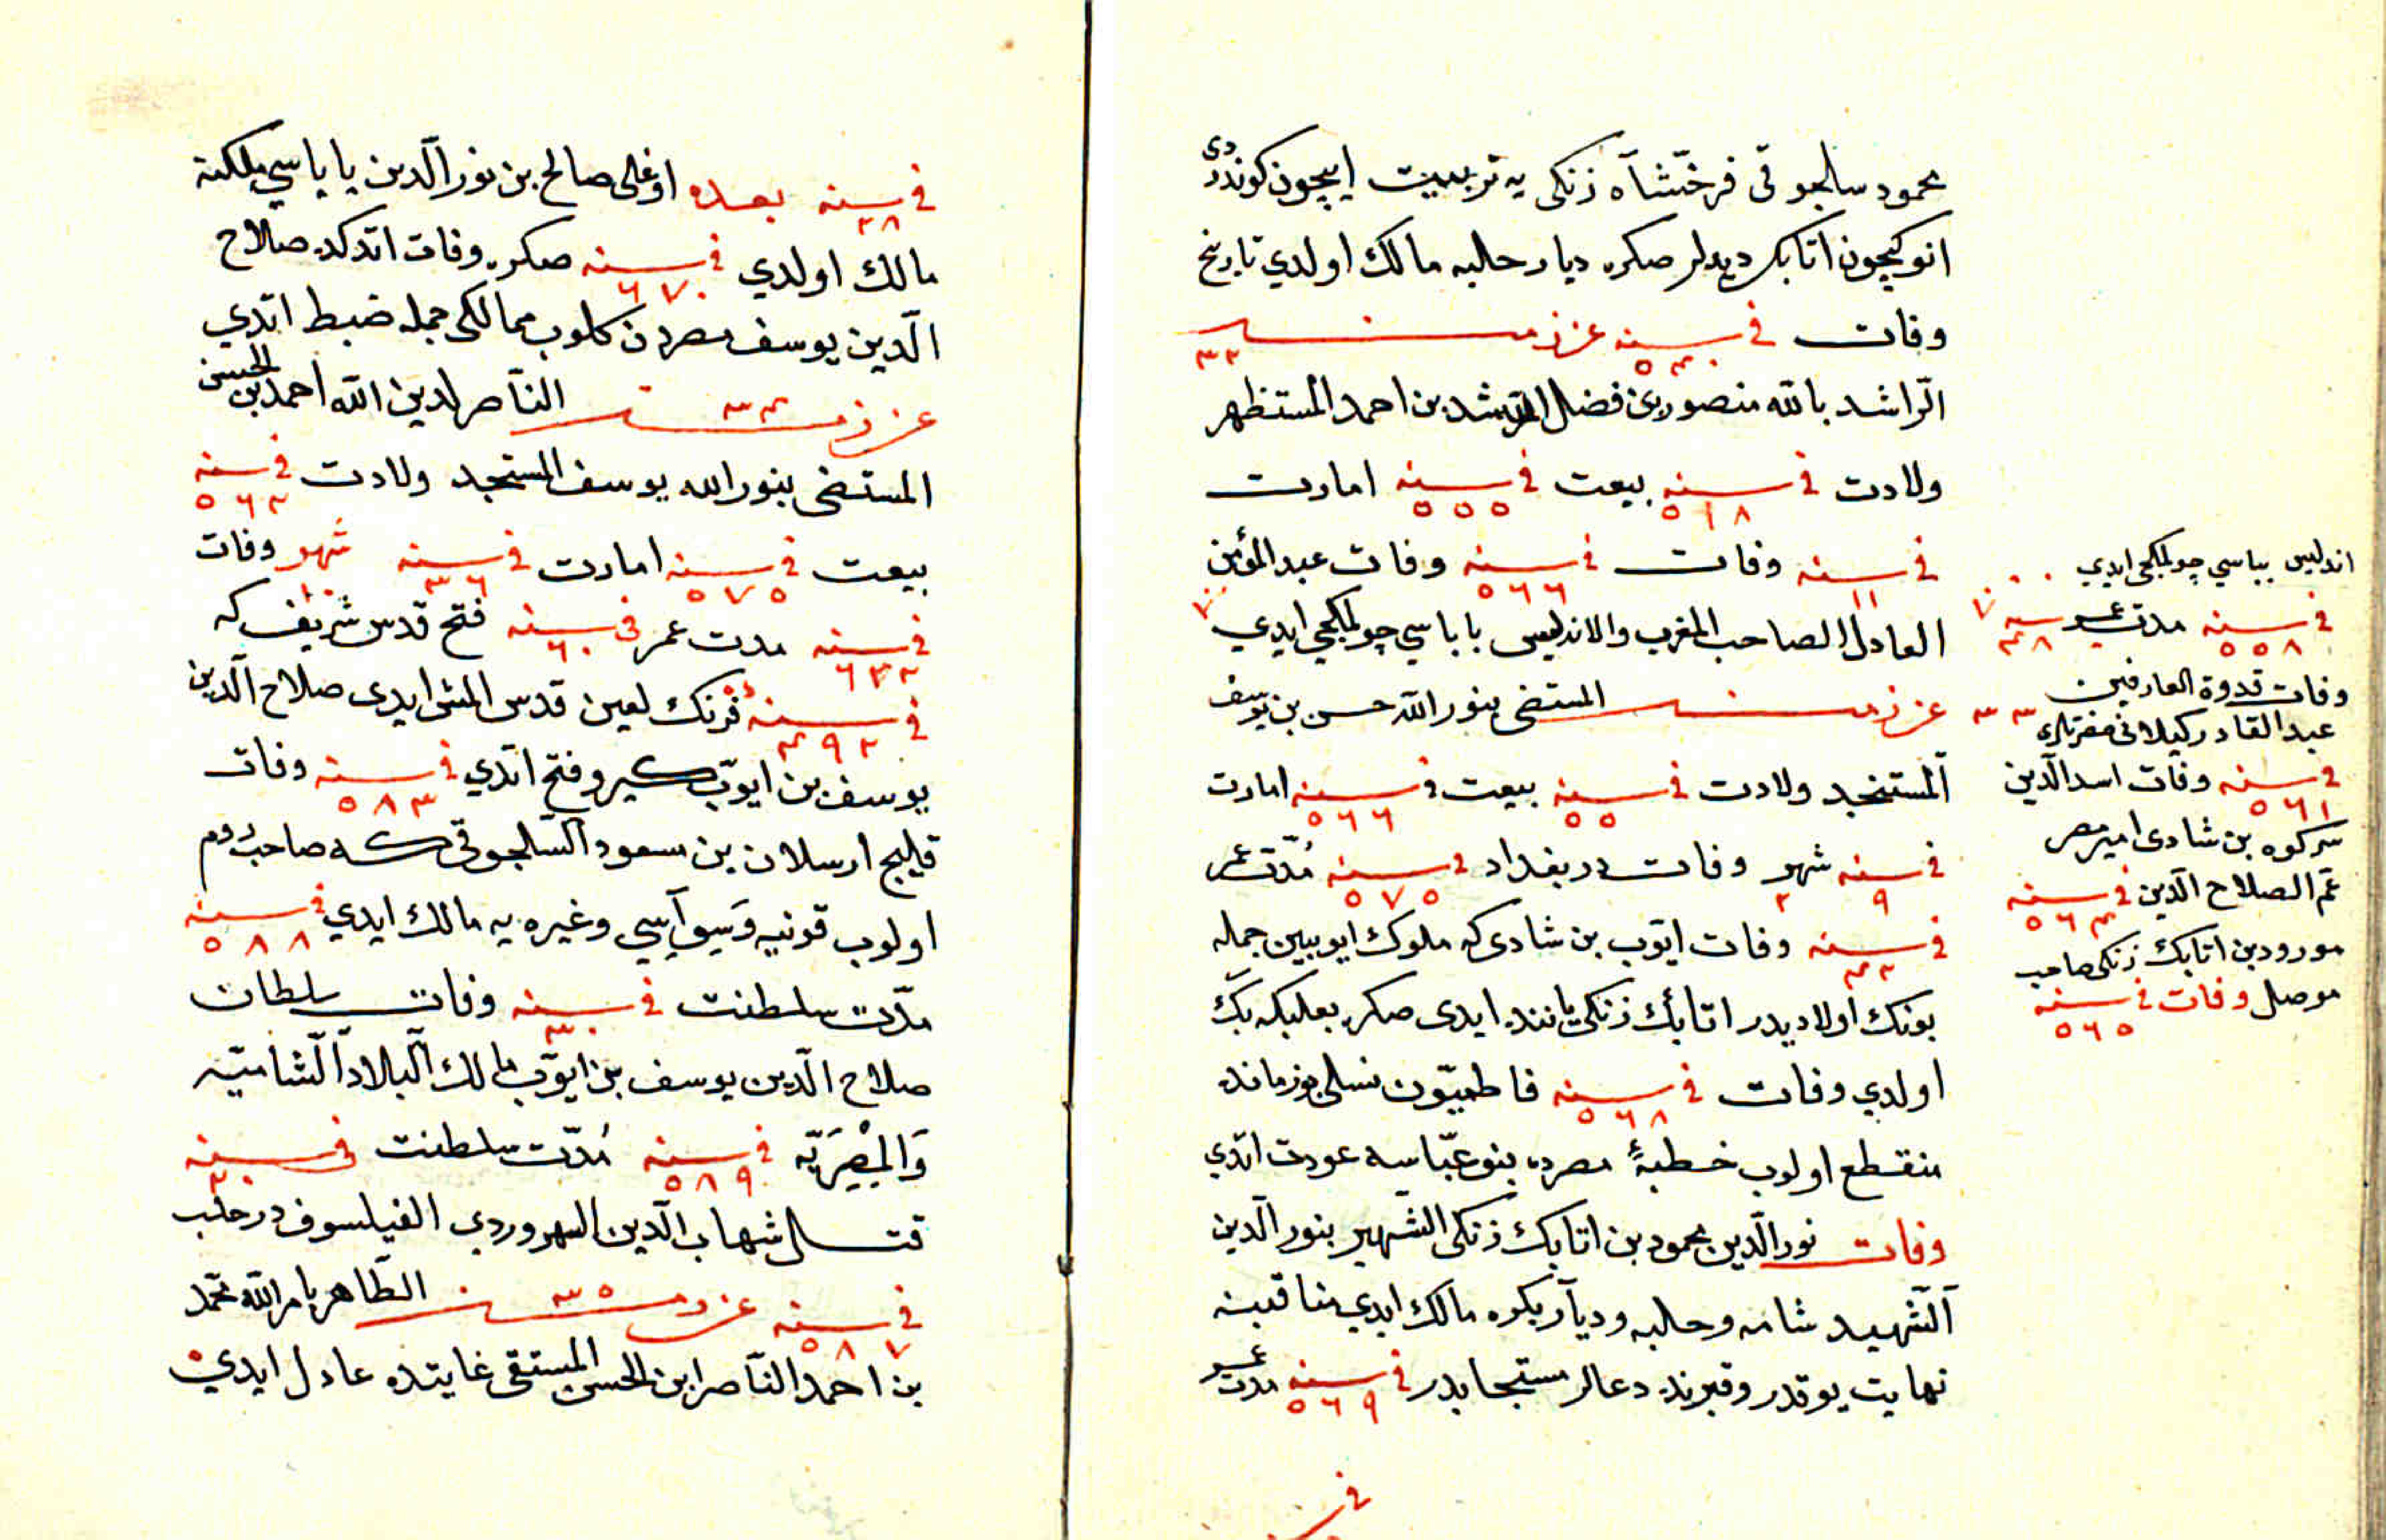 محمود سلجوقى فرخشاه زنكى يه تربييت ايچون كوندردى
انوكيچون اتابك ديدلر صكره ديار حلبه مالك اولدي تاريخ
وفات في سنه ٥٤٠ عزز من ٣٢
الراشد بالله منصور بن فضل المسترشد بن احمد المستظهر
ولادت في سنه ٥١٨ بيعت في سنه ٥٥٥ امارت
في سنه ١١ وفات في سنه ٥٦٦ وفات عبد المؤمن
العادل الصاحب المغرب والاندليس باباسي چولمكجي ايدي
عزز من ٣٣ المستضى بنور الله حسن بن يوسف
المستنجد ولادت في سنه ٥٥ بيعت في سنه ٥٦٦ امارت
في سنه ٩ شهر ٢ وفات در بغداد في سنه ٥٧٥ مدت عمر
في سنه ٤٢ وفات ايوب بن شادى كه ملوك ايوبيين جمله
بونك اولاديدر اتابك زنكى يانند ايدى صكره بعلبكه بك
اولدي وفات في سنه ٥٦٨ فاطميون نسلى بوزمانده
منقطع اولوب خطبۀ مصرده بنو عباسه عودت اتدي
وفات نور الدين محمود بن اتابك زنكى الشهير بنور الدين
الشهيد شامه وحلبه وديار بكره مالك ايدي مناقبنه
نهايت يوقدر وقبرنده دعالر مستجابدر في سنه ٥٦٩ مدت عمر
في
اندليس بباسي چولمكجى ايدي
في سنه ٥٥٨ مدت عمر سنه ٤٨
وفات قدوة العارفين
عبد القادر كيلانى
في سنه ٥٦١ وفات اسد الدين
سركوه بن شادى امير مصر
عم الصلاح الدين في سنه ٥٦٤
مورود بن اتابك زنكى صاحب
موصل وفات في سنه ٥٦٥
في سنه ٢٨ بعده اوغلى صالح بن نور الدين ياباسي ملكنه
مالك اولدي في سنه ٦٧٠ صكره وفات اتدكده صلاح
الدين يوسف مصردن كلوب ممالكى جمله ضبط اتدي
عزز من ٣٤ الناصر لدين الله احمد بن الحسن
المستضى بنور الله يوسف المستنجد ولادت في سنه ٥٦٢
بيعت في سنه ٥٧٥ امارت في سنه ٤٦ شهر ١٠ وفات
في سنه ٦٢٢ مدت عمر في سنه ٦٠ فتح قدس شريف كه
في سنه ٤٩٢ فرنك لعين قدس المش ايدى صلاح الدين
يوسف بن ايوب كير وفتح اتدي في سنه ٥٨٣ وفات
قليج ارسلان بن سعود السلجوقى كه صاحب روم
اولوب قونيه وسيواسي وغيره يه مالك ايدي في سنه ٥٨٨
مدت سلطنت في سنه ٣٠ وفات سلطان
صلاح الدين يوسف بن ايوب مالك البلاد الشاميه
وَالمِصْرَيّه في سنه ٥٨٩ مُدّت سلطنت في سنه ٢٠
قتل شهاب الدين السهروردي الفيلسوف در حلب
في سنه ٥٨٧ عزز من ٣٥ الظاهر بامر الله محمد
بن احمد الناصر ابن الحسن المستقى غايتده عادل ايدي